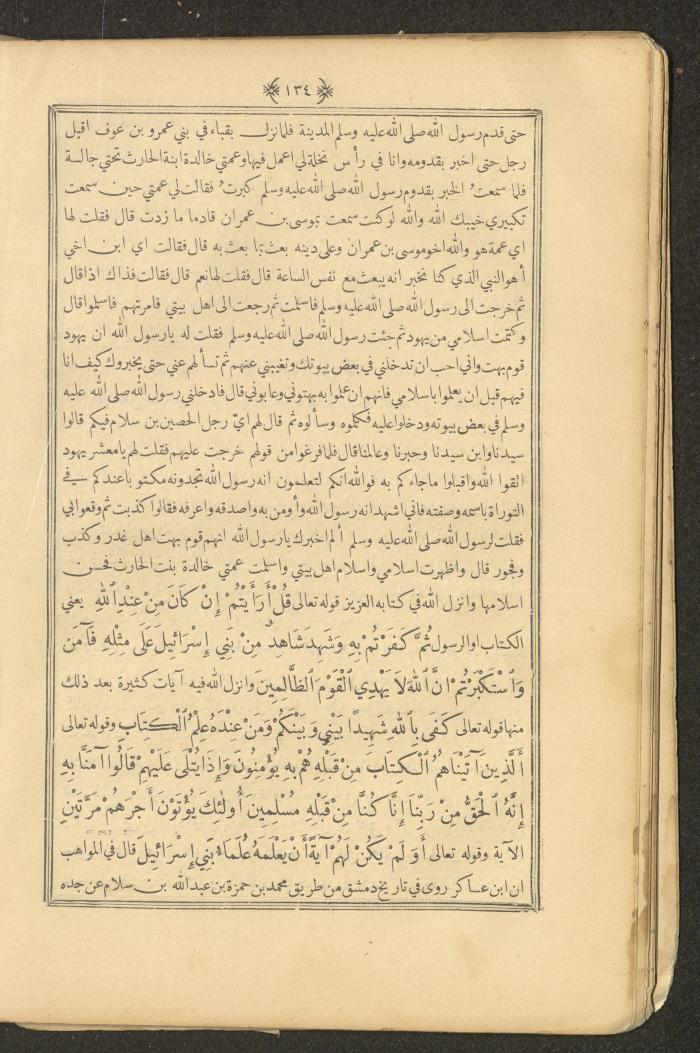 ١٣٤
حتى قدم رسول الله صلى الله عليه وسلم المدينة فلما نزل بقباء في بني عمرو بن عوف اقبل
رجل حتى اخبر بقدومه وانا في رأس نخلة لي اعمل فيها وعمتي خالدة ابنة الحارث تحتي جالسة
فلما سمعت الخبر بقدوم رسول الله صلى الله عليه وسلم كبرت فقالت لي عمتي حين سمعت
تكبيري خيبك الله والله لو كنت سمعت بموسى بن عمران قادما ما زدت قال فقلت لها
اي عمة هو والله اخو موسى بن عمران وعلى دينه بعث بما بعث به قال فقالت اي ابن اخي
أهو النبي الذي كنا نخبر انه يبعث مع نفس الساعة قال فقلت لها نعم قال فقالت فذاك اذا قال
ثم خرجت الى رسول الله صلى الله عليه وسلم فاسلمت ثم رجعت الى اهل بيتي فامرتهم فاسلموا قال
وكتمت اسلامي من يهود ثم جئت رسول الله صلى الله عليه وسلم فقلت له يارسول الله ان يهود
قوم بهت واني احب ان تدخلني في بعض بيوتك وتغيبني عنهم ثم تسألهم عني حتى يخبروك كيف انا
فيهم قبل ان يعلموا باسلامي فانهم ان علموا به بهتوني وعابوني قال فادخلني رسول الله صلى الله عليه
وسلم في بعض بيوته ودخلوا عليه فكلموه وسألوه ثم قال لهم ايّ رجل الحصين بن سلام فيكم قالوا
سيدنا وابن سيدنا وحبرنا وعالمنا قال فلما فرغوا من قولهم خرجت عليهم فقلت لهم يامعشر يهود
اتقوا الله واقبلوا ما جاءكم به فوالله انكم لتعلمون انه رسول الله تجدونه مكتوبا عندكم في
التوراة باسمه وصفته فاني اشهد انه رسول الله وأومن به واصدقه واعرفه فقالوا كذبت ثم وقعوا بي
فقلت لرسول الله صلى الله عليه وسلم ألم اخبرك يارسول الله انهم قوم بهت اهل غدر وكذب
وفجور قال واظهرت اسلامي واسلام اهل بيتي واسلمت عمتي خالدة بنت الحارث فحسن
اسلامها وانزل الله في كتابه العزيز قوله تعالى قُلْ أَرَأَيْتُمْ إِنْ كَانَ مِنْ عِنْدِ ٱللهِ يعني
الكتاب او الرسول ثُمَّ كَفَرْتُمْ بِهِ وَشَهِدَ شَاهِدٌ مِنْ بَنِي إِسْرَائِيلَ عَلَى مِثْلِهِ فَآمَنَ
وَٱسْتَكْبَرْتُمْ إِنَّ ٱللهَ لَا يَهْدِي ٱلْقَوْمَ ٱلظَّالِمِينَ وانزل الله فيه آيات كثيرة بعد ذلك
منها قوله تعالى كَفَى بِٱللهِ شَهِيدًا بَيْنِي وَبَيْنَكُمْ وَمَنْ عِنْدَهُ عِلْمُ ٱلْكِتَابِ وقوله تعالى
ٱلَّذِينَ آتَيْنَاهُمُ ٱلْكِتَابَ مِنْ قَبْلِهِ هُمْ بِهِ يُؤْمِنُونَ وَإِذَا يُتْلَى عَلَيْهِمْ قَالُوا آمَنَّا بِهِ
إِنَّهُ ٱلْحَقُّ مِنْ رَبِّنَا إِنَّا كُنَّا مِنْ قَبْلِهِ مُسْلِمِينَ أُولٰئِكَ يُؤْتَوْنَ أَجْرَهُمْ مَرَّتَيْنِ
الآية وقوله تعالى أَوَلَمْ يَكُنْ لَهُمْ آيَةً أَنْ يَعْلَمَهُ عُلَمَاءُ بَنِي إِسْرَائِيلَ قال في المواهب
ان ابن عساكر روى في تاريخ دمشق من طريق محمد بن حمزة بن عبد الله بن سلام عن جده